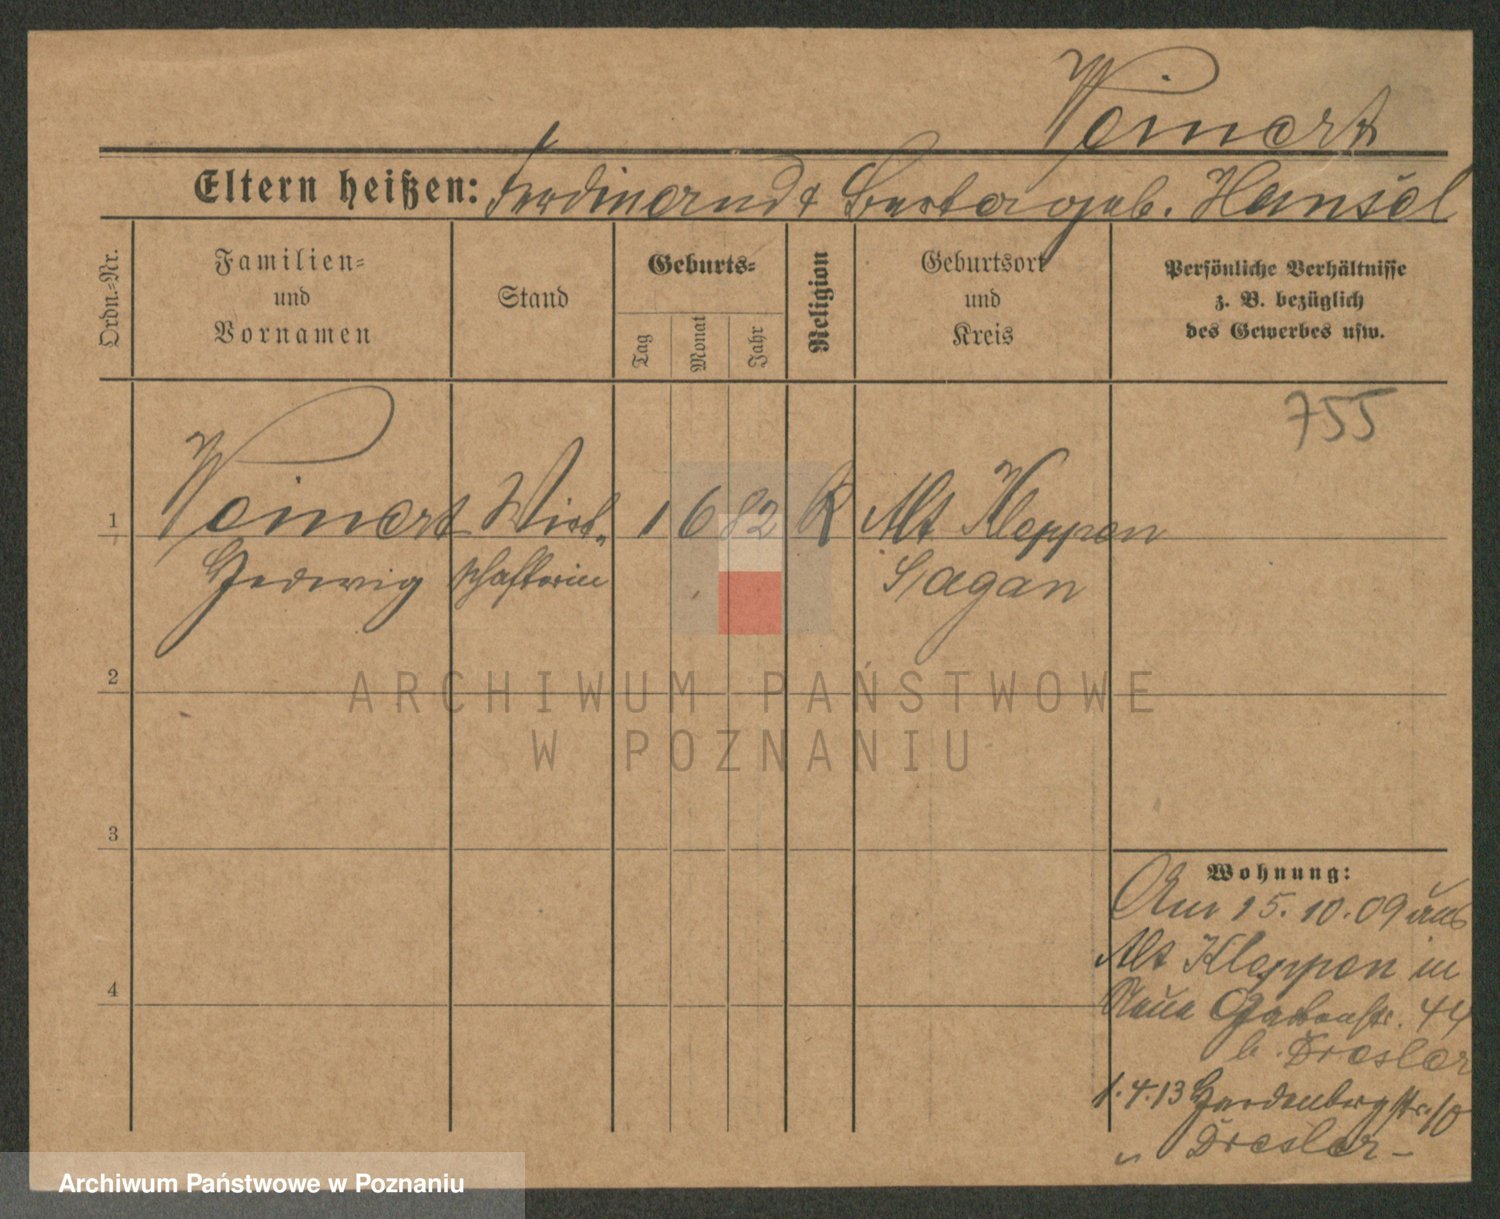 Weinert
Eltern heißen: Ferdinand & Berta geb. Hänsel
Ordn.-Nr.
Familien-
und
Vornamen
Stand
Geburts-
Tag
Monat
Jahr
Religion
Geburtsort
und
Kreis
Persönliche Verhältnisse
z. B. bezüglich
des Gewerbes usw.
755
1 Weinert Wirt- 1 6 82 K Alt Kleppen
Hedwig schafterin Sagan
2
3
4
ARCHIWUM PAŃSTWOWE
W POZNANIU
Wohnung:
Am 15.10.09 aus
Alt Kleppen in
Neue Gartenstr. 44
b. Dresler
1.4.13 Hardenbergstr. 10
" Dresler
Archiwum Państwowe w Poznaniu